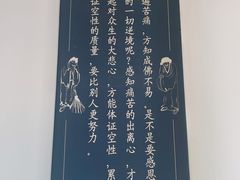 遍苦痛，方知成佛不易。是不是要感恩
的一切逆境呢？感知痛苦的出离心，才
起对众生的大悲心，方能体证空性，累
证空性的质量，要比别人更努力。